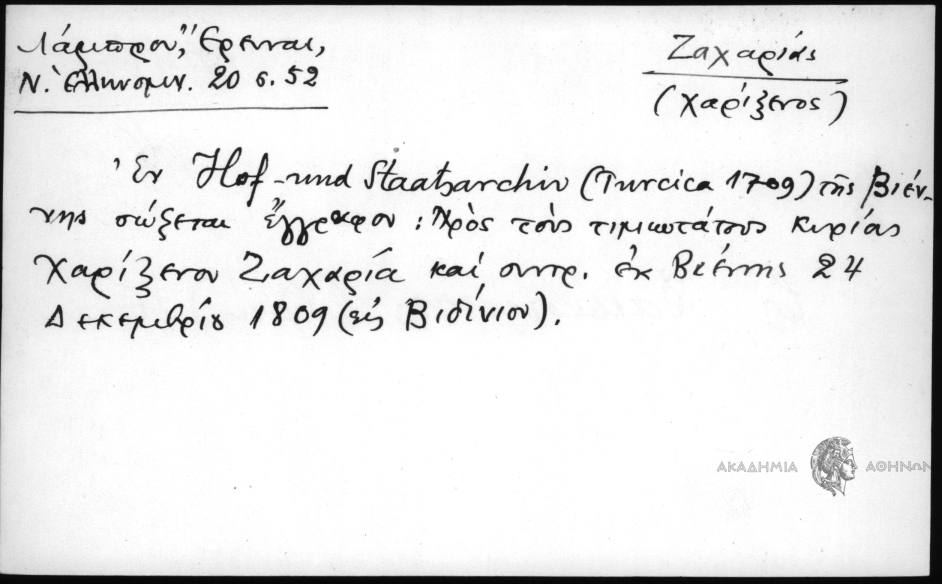 Λάμπρου, Ἔρευναι,
Ν. Ἑλληνομν. 20 σ. 52
Ζαχαρίας
(Χαρίξενος)
Ἐν Hof-und Staatsarchiv (Turcica 1709) τῆς Βιέν-
νης σώζεται ἔγγραφον: Πρὸς τοὺς τιμιωτάτους κυρίας
Χαρίξενον Ζαχαρία καὶ συντρ. ἐκ Βιέννης 24
Δεκεμβρίου 1809 (εἰς Βιδίνιον).
ΑΚΑΔΗΜΙΑ ΑΘΗΝΩΝ